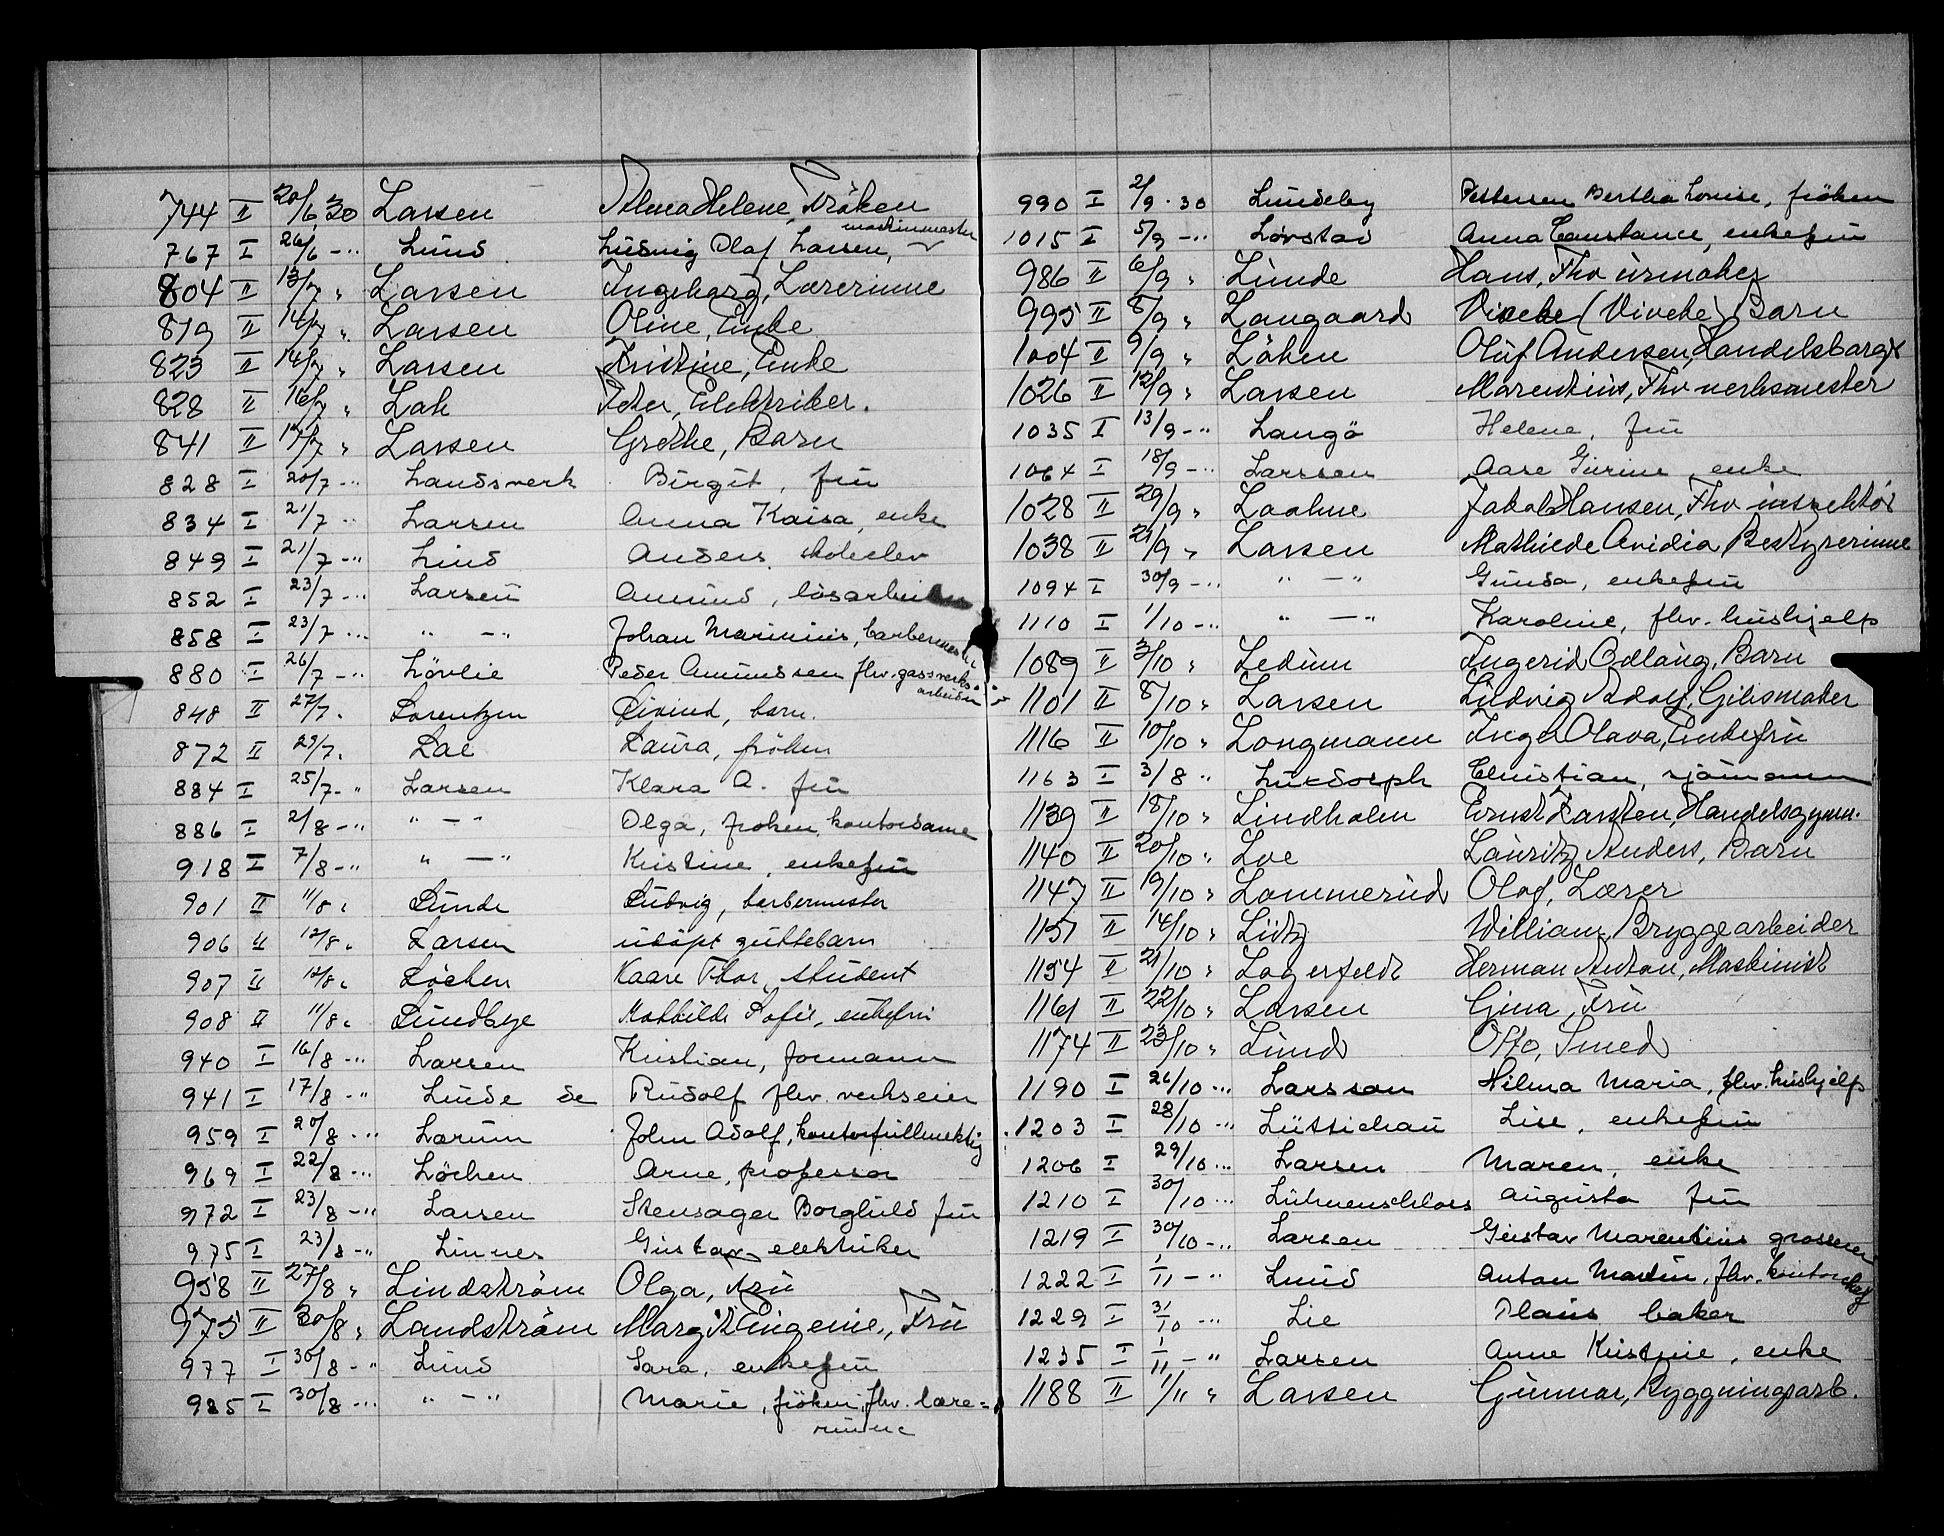 744 II 20/6 30 Larsen Alma Helene, Fröken
767 I 26/6 -" Lund Ludvig Olaf Larsen, maskinmester
804 II 13/7 " Larsen Ingeborg, Lærerinne
819 II 14/7 " Larsen Oline, Enke
823 II 14/7 " Larsen Kristine, Enke
828 II 16/7 " Lah Peter, Elektriker.
841 II 17/7 " Larsen Grethe, Barn
828 I 20/7 -" Landsverk Birgit, fru
834 I 21/7 -" Larsen Anna Kaisa, enke
849 I 21/7 -" Lind Anders, skoleelev
852 I 23/7 -" Larsen Amund, løsarbeider
858 I 23/7 -" " - " Johan Marinius, barbermester
880 I 26/7 -" Lövlie Peder Amundsen fhv. gassverks-
arbeider
848 II 27/7 " Lorentzen Eivind, barn.
872 II 29/7 " Lae Laura, fröken
884 I 25/7 -" Larsen Klara A. fru
886 I 2/8 -" " - " Olga, frøken, kontordame
918 I 7/8 -" " - " Kristine, enkefru
901 II 11/8 " Lunde Ludvig, barbermester
906 II 12/8 " Larsen udöpt guttebarn
907 II 12/8 " Löchen Kaare Thor, student
908 II 11/8 " Lundbye Mathilde Sofie, enkefru
940 I 16/8 -" Larsen Kristian, formann
941 I 17/8 -" Linde de Rudolf fhv. verkseier
959 I 20/8 -" Larum John Adolf, kontorfullmektig
969 I 22/8 -" Löchen Arne, professor
972 I 23/8 -" Larsen Stensager Borghild fru
975 I 23/8 -" Linnes Gustav elektriker
958 II 27/8 " Lindström Olga, Fru
975 II 30/8 " Landström Margit Eugenie, Fru
977 I 30/8 -" Lund Sara, enkefru
985 I 30/8 -" " - " Marie, fröken, fhv. lære-
rinne
990 I 2/9 . 30 Lundeby Pettersen Bertha Louise, fröken
1015 I 5/9 -" Lövstad Anna Constance, enkefru
986 II 6/9 " Lunde Hans, Fhv urmaker
995 II 8/9 " Langaard Vivebe (Viveke) Barn
1004 II 9/9 " Löken Oluf Andersen, Handelsborger
1026 II 12/9 " Larsen Marentius, Fhv verksmester
1035 I 13/9 -" Langö Helene, fru
1064 I 18/9 -" Larssen Aase Gurine, enke
1028 II 29/9 " Laahne Jakob Hansen, Fhv inspektör
1038 II 21/9 " Larsen Mathilde Avidia Bestyrerinne
1094 I 30/9 -" " - " Gunda, enkefru
1110 I 1/10 -" " - " Karoline, fhv. hushjelp
1089 II 3/10 " Ledum Ingerid Odlaug, Barn
1101 II 8/10 " Larsen Ludvig Adolf, Gibsmaker
1116 II 10/10 " Longmann Inga Olava, Enkefru
1163 I 3/8 " Luxdorph Christian, sjömann
1139 II 18/10 " Lindholm Ernst Karsten, Handelsgymn.
1140 II 20/10 " Loe Lauritz Anders, Barn
1147 II 19/10 " Lammerud Olaf, Lærer
1151 II 14/10 " Lütz William, Bryggearbeider
1154 II 21/10 " Lagerfeldt Herman Anton, Maskinist
1161 II 22/10 " Larsen Gina, Fru
1174 II 23/10 " Lund Otto, Smed
1190 I 26/10 -" Larsson Hilma Maria, fhv. hushjelp
1203 I 28/10 -" Lüttichau Lise, enkefru
1206 I 29/10 -" Larsen Maren, enke
1210 I 30/10 -" Lühnenschloss Augusta fru
1219 I 30/10 -" Larsen Gustav Marentius grosserer
1222 I 1/11 -" Lund Anton Martin, fhv. kontorchef
1229 I 31/10 -" Lie Klaus baker
1235 I 1/11 -" Larsen Anne Kristine, enke
1188 II 1/11 " Larsen Gunnar, Byggningsarb.